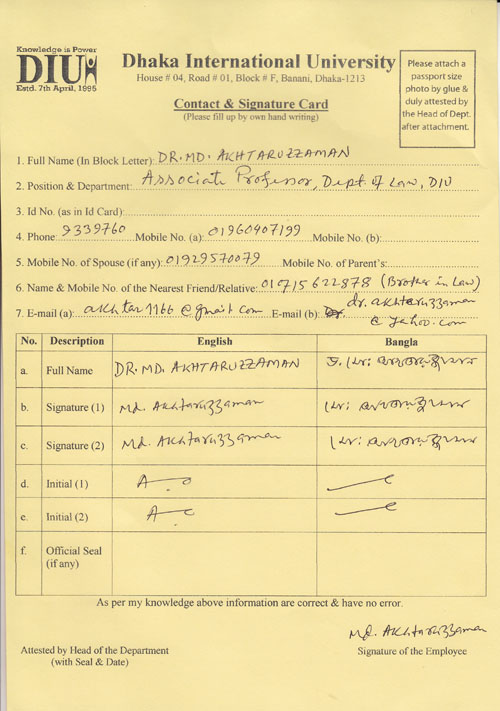 Knowledge is Power
DIU
Estd. 7th April, 1995
Dhaka International University
House # 04, Road # 01, Block # F, Banani, Dhaka-1213
Contact & Signature Card
(Please fill up by own hand writing)
Please attach a
passport size
photo by glue &
duly attested by
the Head of Dept.
after attachment.
1. Full Name (In Block Letter): DR. MD. AKHTARUZZAMAN
2. Position & Department: Associate Professor, Dept. of Law, DIU
3. Id No. (as in Id Card):
4. Phone 9339760 Mobile No. (a): 01960907199 Mobile No. (b):
5. Mobile No. of Spouse (if any): 01929570079 Mobile No. of Parent's:
6. Name & Mobile No. of the Nearest Friend/Relative: 01715622878 (Brother in Law)
7. E-mail (a): akhter1166@gmail.com E-mail (b) dr.akhtaruzzaman
@yahoo.com
No. Description English Bangla
a. Full Name DR. MD. AKHTARUZZAMAN ড. মো: আখতারুজ্জামান
b. Signature (1) Md. Akhtaruzzaman মো: আখতারুজ্জামান
c. Signature (2) Md. Akhtaruzzaman মো: আখতারুজ্জামান
d. Initial (1)
e. Initial (2)
f. Official Seal
(if any)
As per my knowledge above information are correct & have no error.
Md. Akhtaruzzaman
Attested by Head of the Department
(with Seal & Date)
Signature of the Employee